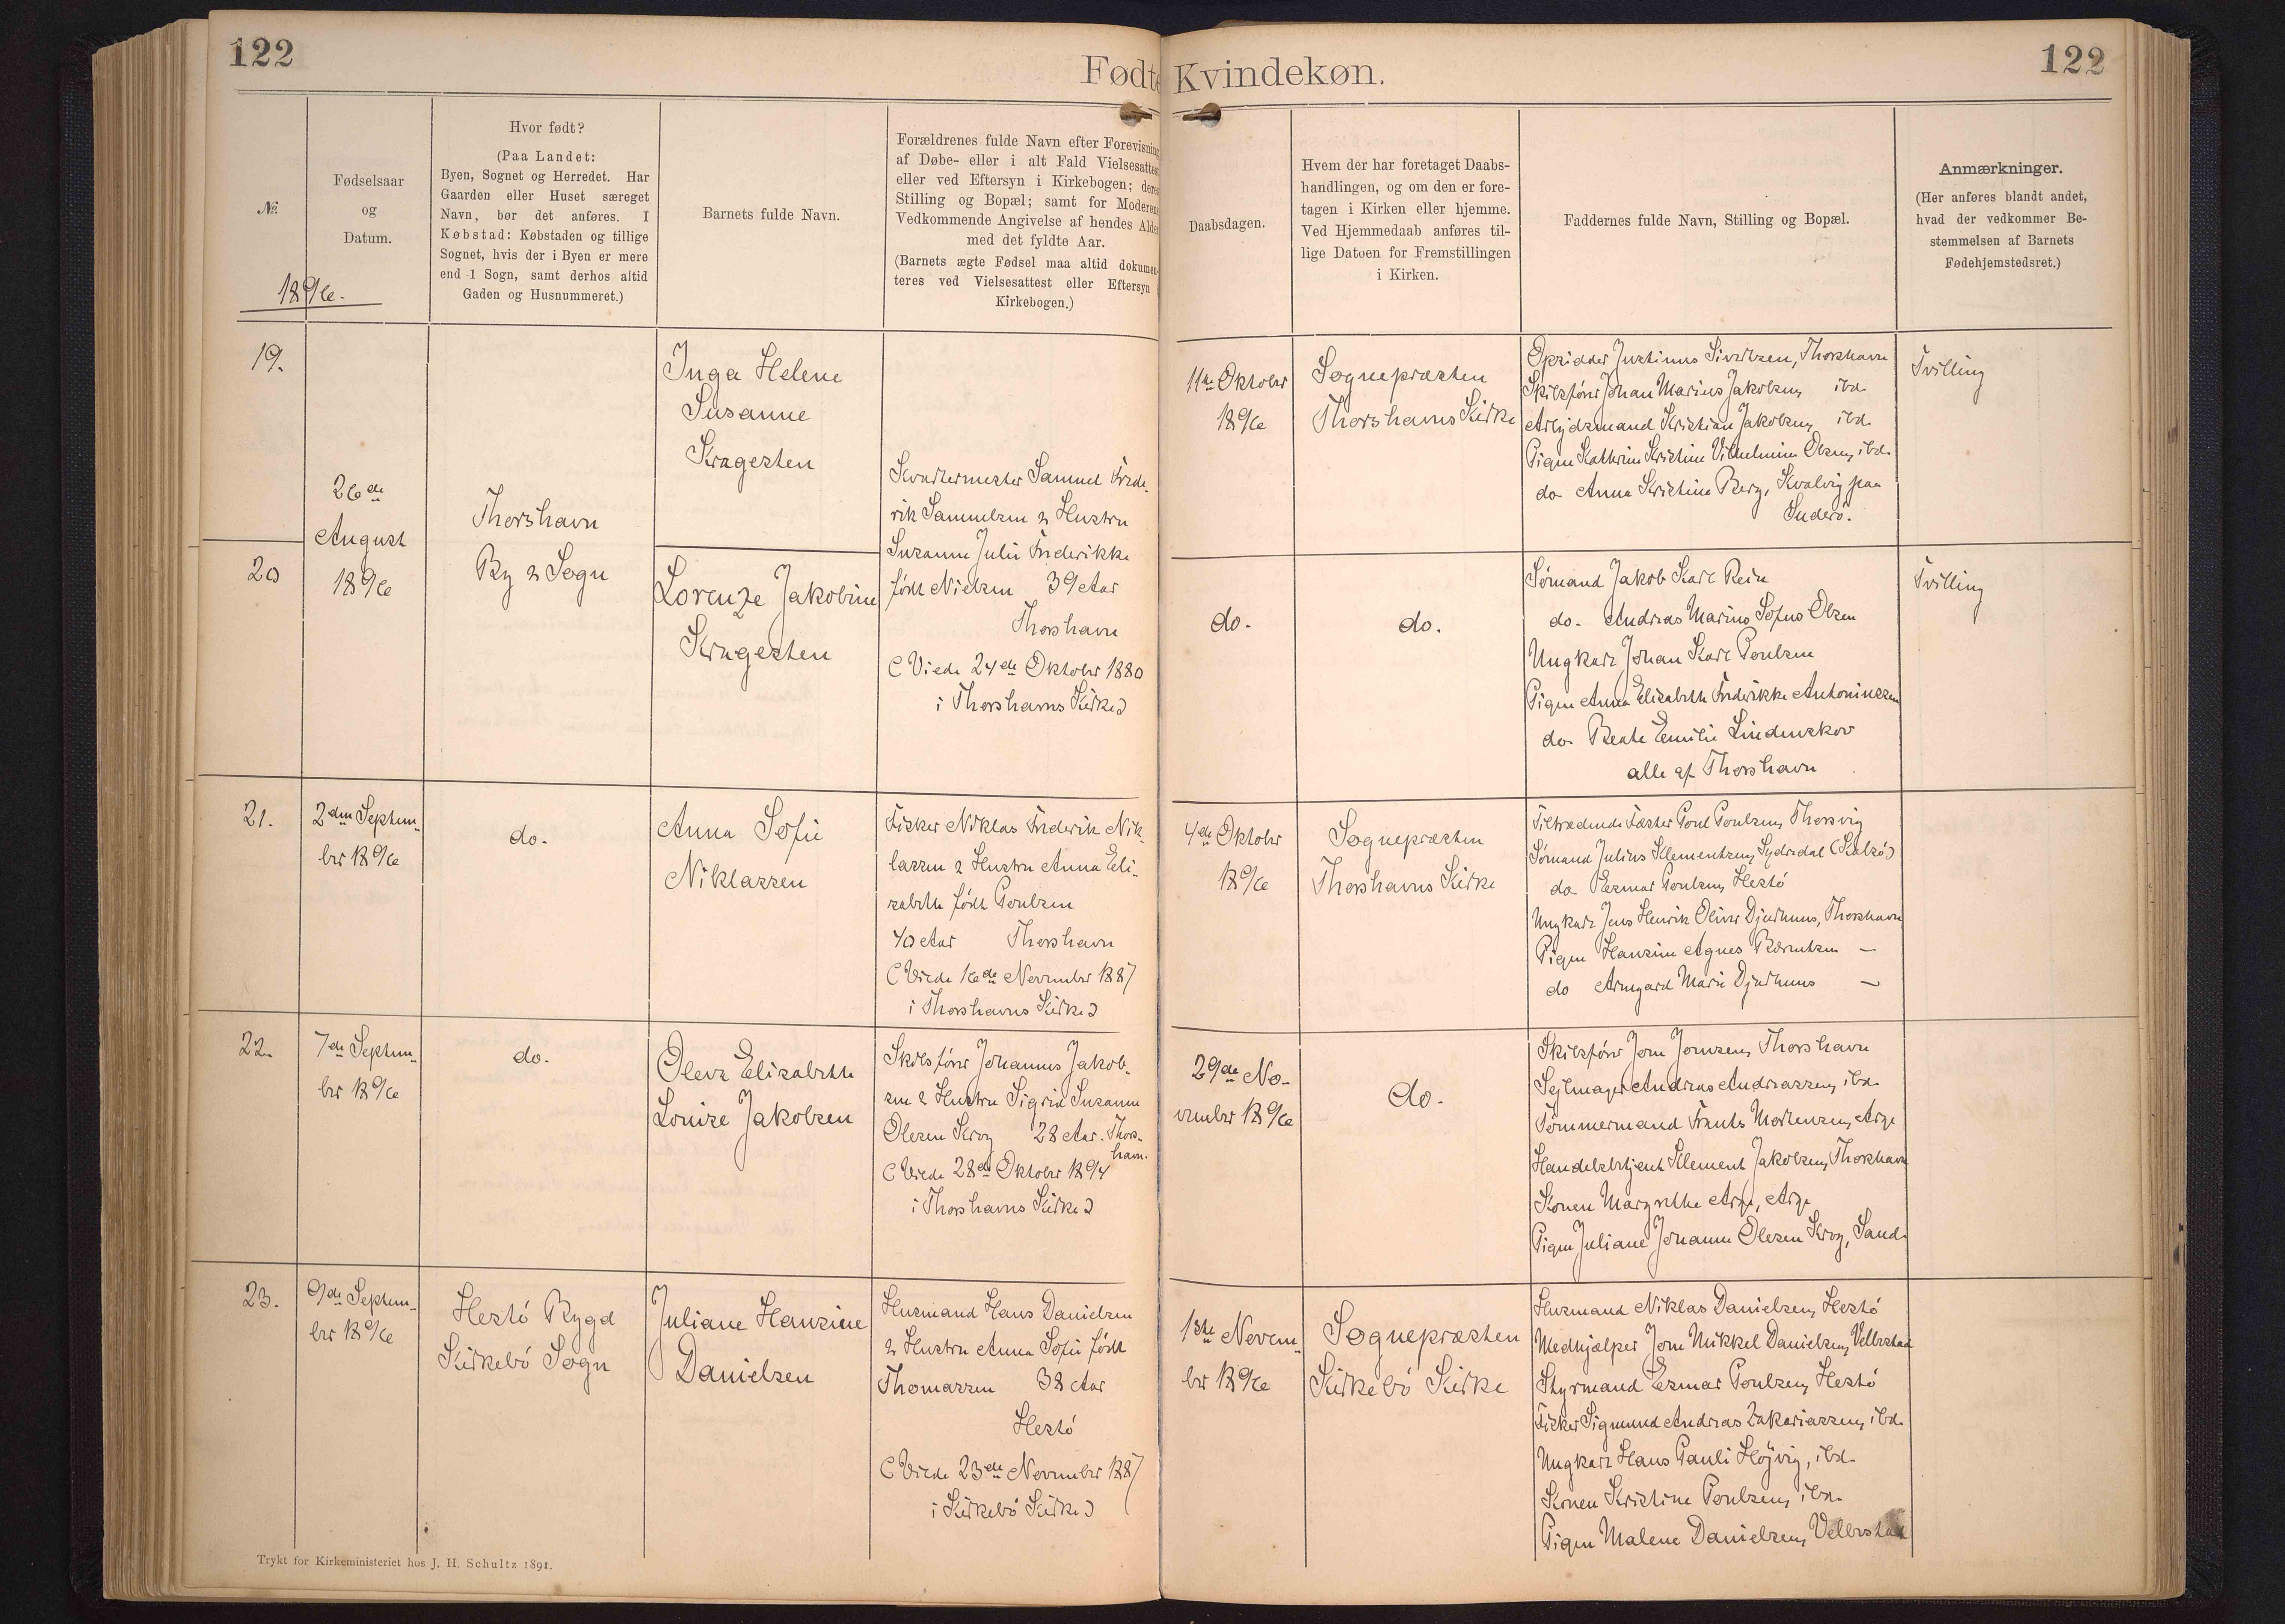 122
Fødte
Kvindekøn.
122
№
Fødselsaar
og
Datum.
1896.
Hvor født?
(Paa Landet:
Byen, Sognet og Herredet. Har
Gaarden eller Huset særeget
Navn, bør det anføres. I
Købstad: Købstaden og tillige
Sognet, hvis der i Byen er mere
end 1 Sogn, samt derhos altid
Gaden og Husnummeret.)
Barnets fulde Navn.
Forældrenes fulde Navn efter Forevisning
af Døbe- eller i alt Fald Vielsesattest
eller ved Eftersyn i Kirkebogen; deres
Stilling og Bopæl; samt for Moderens
Vedkommende Angivelse af hendes Alder
med det fyldte Aar.
(Barnets ægte Fødsel maa altid dokumen-
teres ved Vielsesattest eller Eftersyn i
Kirkebogen.)
Daabsdagen.
Hvem der har foretaget Daabs-
handlingen, og om den er fore-
tagen i Kirken eller hjemme.
Ved Hjemmedaab anføres til-
lige Datoen for Fremstillingen
i Kirken.
Faddernes fulde Navn, Stilling og Bopæl.
Anmærkninger.
(Her anføres blandt andet,
hvad der vedkommer Be-
stemmelsen af Barnets
Fødehjemstedsret.)
19.
20
26de
August
1896
Thorshavn
By & Sogn
Inga Helene
Susanne
Kragesten
Lorenze Jakobine
Kragesten
Kvartermester Samuel Frede-
rik Samuelsen & Hustru
Susanne Julie Frederikke
født Nielsen 39 Aar
Thorshavn
(Viede 24de Oktober 1880
i Thorshavns Kirke)
11te Oktober
1896
Sognepræsten
Thorshavns Kirke
Opsidder Justinus Sivertsen, Thorshavn
Skibsfører Johan Marius Jakobsen, ibd.
Arbejdsmand Kristian Jakobsen, ibd.
Pigen Kathrine Kristine Vilhelmine Olsen, ibd.
do Anna Kristine Berg, Kvalvig paa
Suderø.
Tvilling
do.
do.
Sømand Jakob Karl Rein
do. Andreas Marius Sofus Olsen
Ungkarl Johan Karl Poulsen
Pigen Anna Elisabeth Frederikke Antoniussen
do. Beate Emilie Lindenskov
alle af Thorshavn
Tvilling
21.
2den Septem-
ber 1896
do.
Anna Sofie
Niklassen
Fisker Niklas Frederik Nik-
lassen & Hustru Anna Eli-
sabeth født Poulsen
40 Aar Thorshavn
(Viede 16de November 1887
i Thorshavns Kirke)
4de Oktober
1896
Sognepræsten
Thorshavns Kirke
Tiltrædende Fæster Poul Poulsen, Thorsvig
Sømand Julius Klementsen, Sydredal (Kalsø)
do. Esmar Poulsen, Hestø
Ungkarl Jens Henrik Oliver Djurhuus, Thorshavn
Pigen Hansine Agnes Berentsen –
do Armgard Marie Djurhuus –
22.
7de Septem-
ber 1896
do.
Oleva Elisabeth
Louise Jakobsen
Skibsfører Johannes Jakob-
sen & Hustru Sigrid Susanne
Olesen Krog 28 Aar. Thors-
havn.
(Viede 28de Oktober 1894
i Thorshavns Kirke)
29de No-
vember 1896
do.
Skibsfører Jens Joensen, Thorshavn
Sejlmager Andreas Andreassen, ibd.
Tømmermand Frants Mortensen, Arge
Handelsbetjent Klement Jakobsen, Thorshavn
Konen Margrethe Arge, Arge
Pigen Juliane Johanne Olesen Krog, Sand.
23.
9de Septem-
ber 1896
Hestø Bygd
Kirkebø Sogn
Juliane Hansine
Danielsen
Husmand Hans Danielsen
& Hustru Anna Sofie født
Thomassen 38 Aar
Hestø
(Viede 23de November 1887
i Kirkebø Kirke)
1ste Novem-
ber 1896
Sognepræsten
Kirkebø Kirke
Husmand Niklas Danielsen, Hestø
Medhjælper Joen Mikkel Danielsen, Velbestad
Styrmand Esmar Poulsen, Hestø
Fisker Sigmund Andreas Zakariassen, ibd.
Ungkarl Hans Pauli Højvig, ibd.
Konen Kristine Poulsen, ibd.
Pigen Malene Danielsen, Velbestad
Trykt for Kirkeministeriet hos J. H. Schultz 1891.